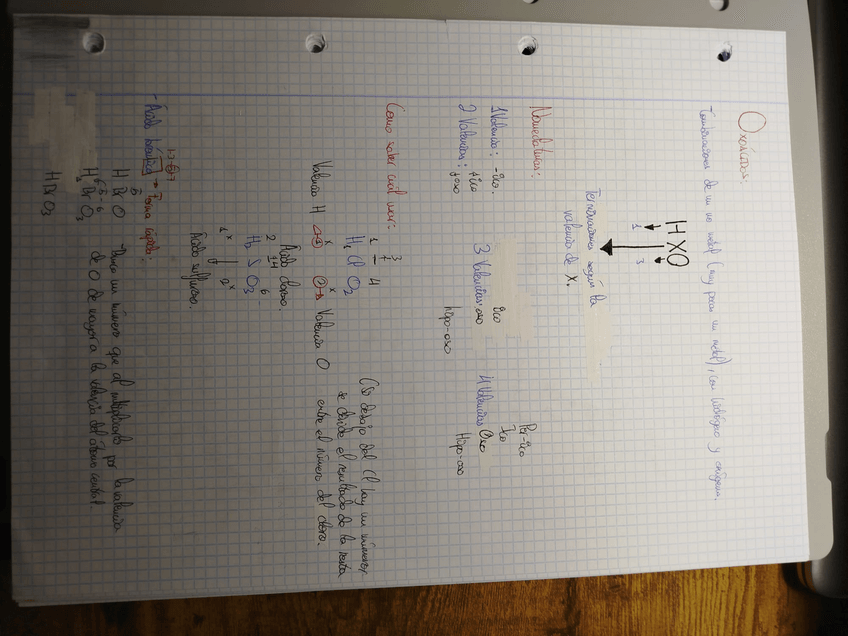 Oxoácidos:
Combinaciones de un no metal (muy pocas un metal), con hidrógeno y oxígeno.
HXO
1 3
Terminaciones según la
valencia de X.
Nomenclatura:
1 Valencia: -ico.
2 Valencias: ico
oso
3 Valencias: ico
oso
hipo-oso
4 Valencias: Per-ico
Ico
Oso
Hipo-oso
Como saber cual usar:
1 3 4
H Cl O2
Valencia H Valencia O
(Si debajo del Cl hay un número
se divide el resultado de la resta
entre el número del cloro.
Ácido cloroso.
2 4 6
H2 S O3
1x 2x
Ácido sulfuroso.
- Ácido brómico → Forma rápida:
H Br O
- Busco un número que al multiplicarlo por la valencia
de O de mayor a la valencia del átomo central
H Br O3
H Br O3